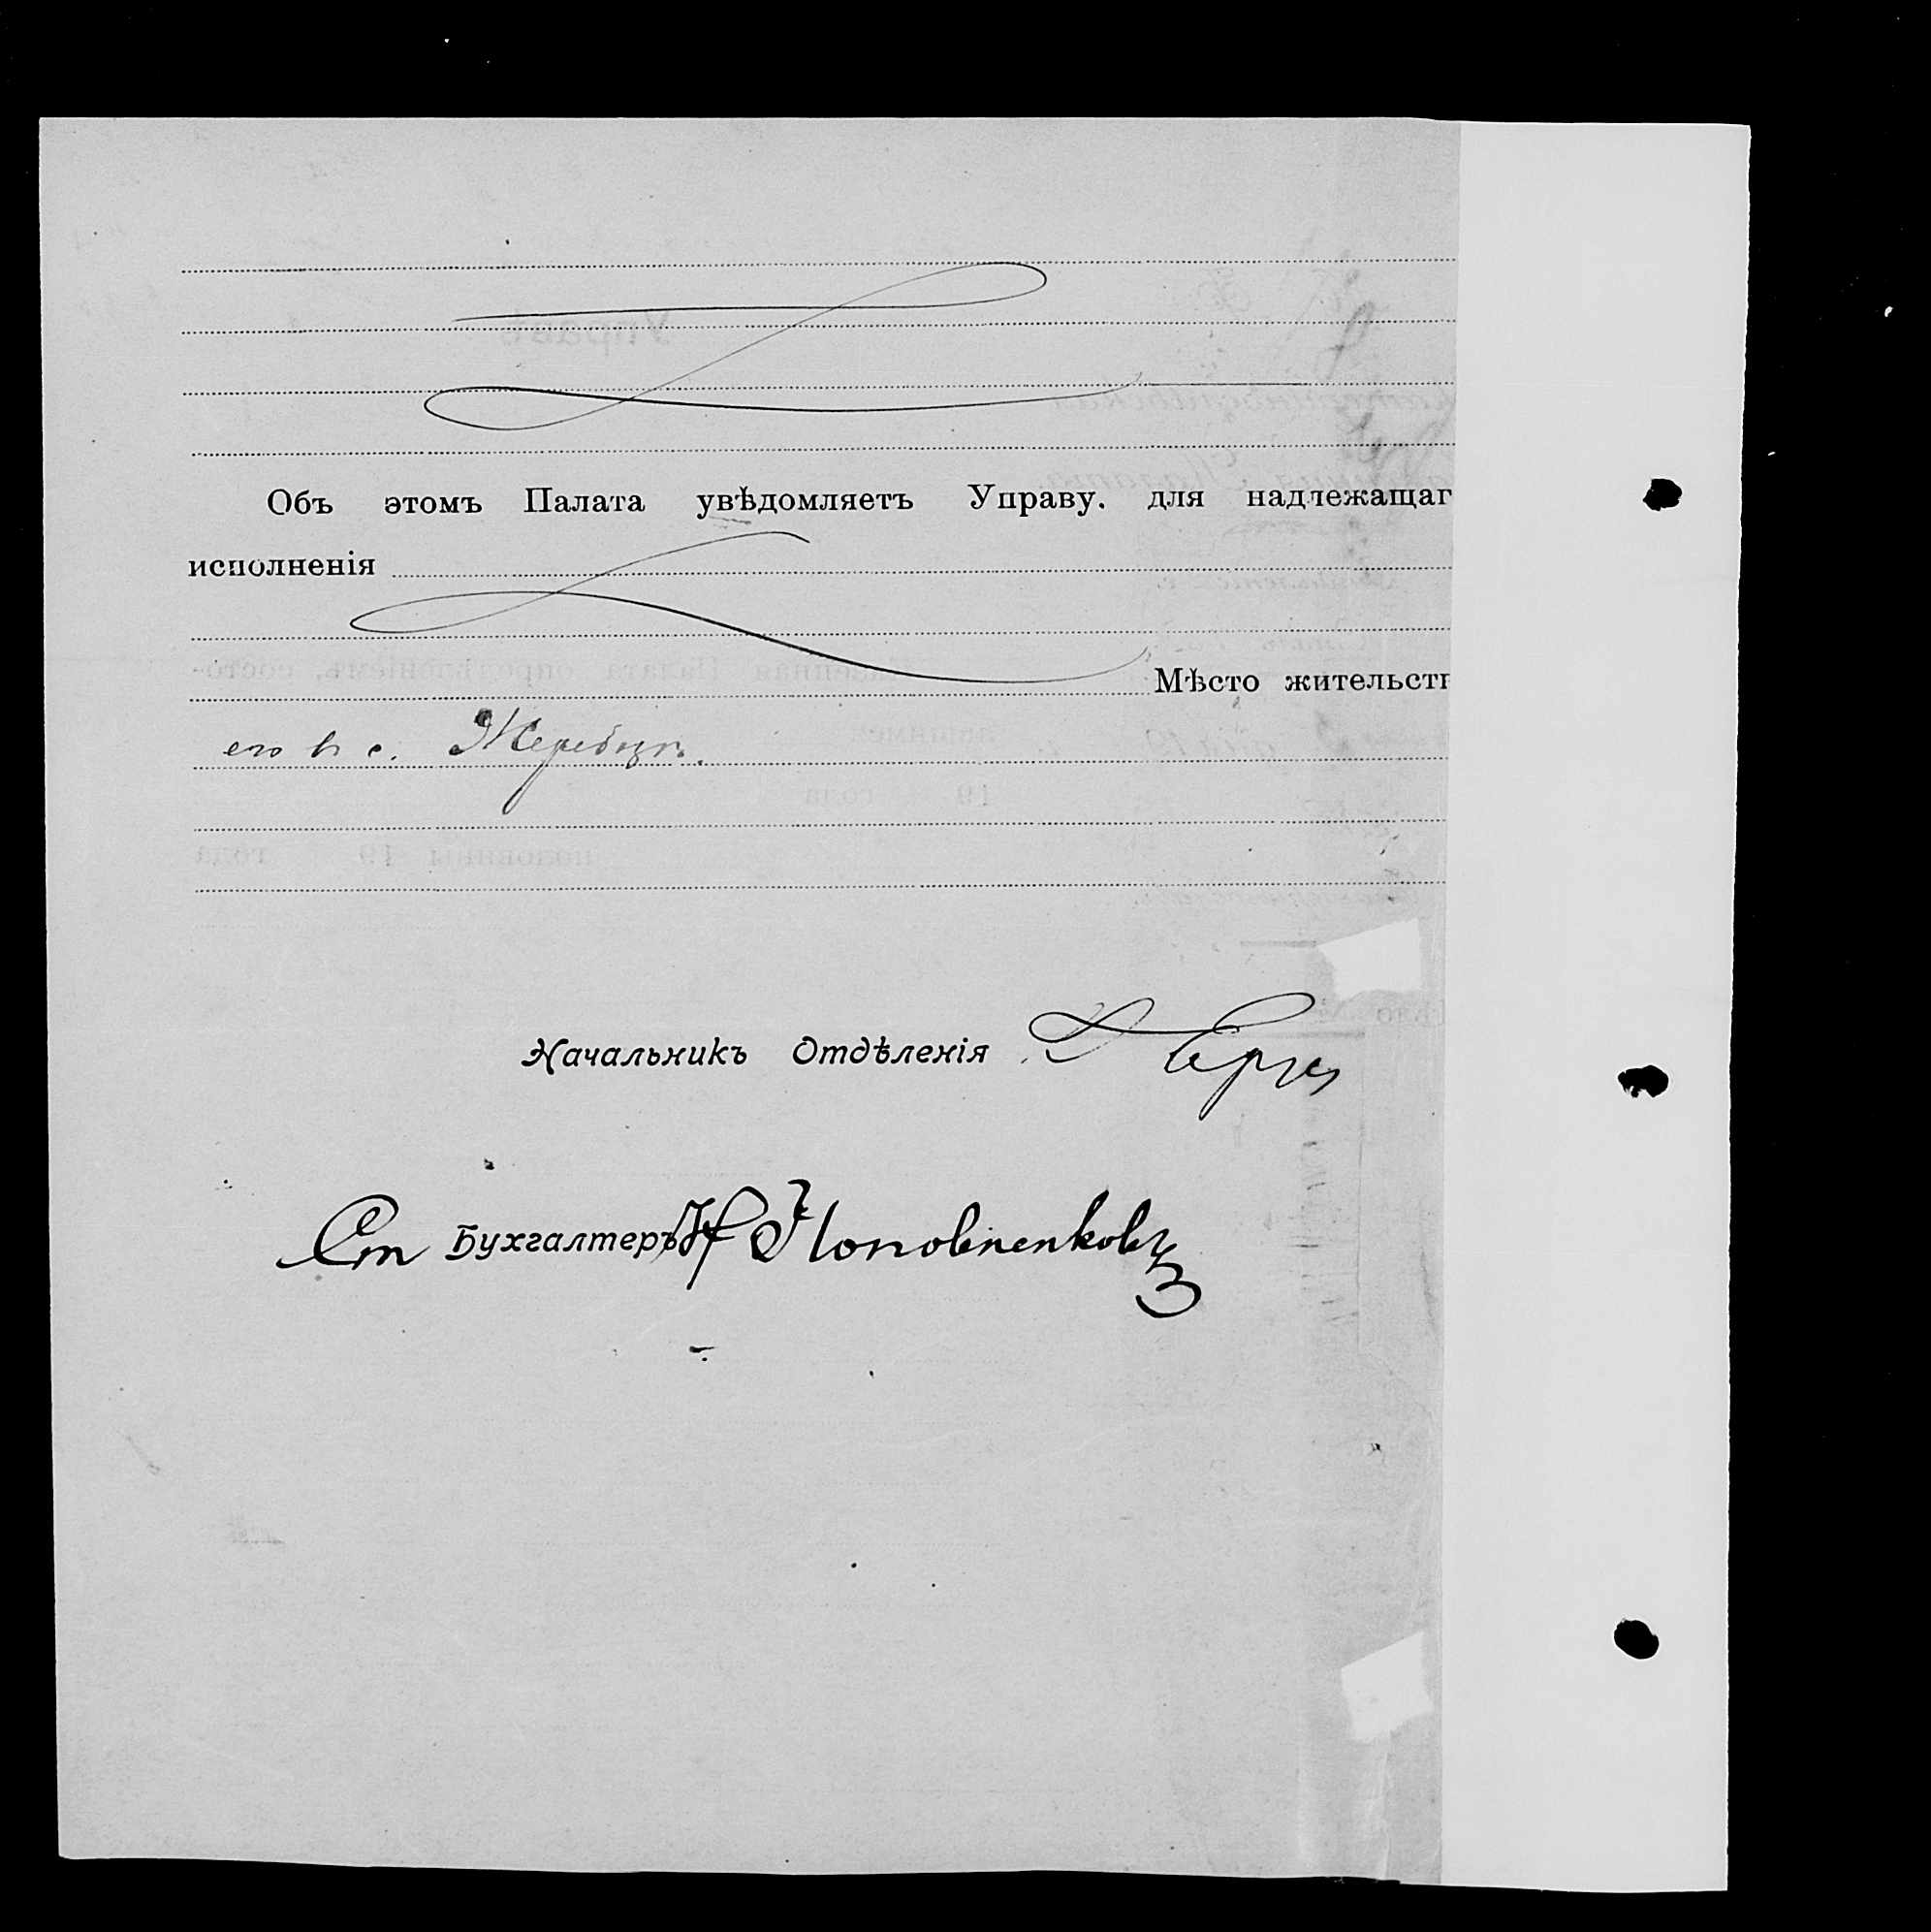 Объ этомъ Палата увѣдомляетъ Управу. для надлежащаг
исполненія
Мѣсто жительств
его въ с. Жеребцѣ.
Начальникъ Отдѣленія
Ст Бухгалтеръ